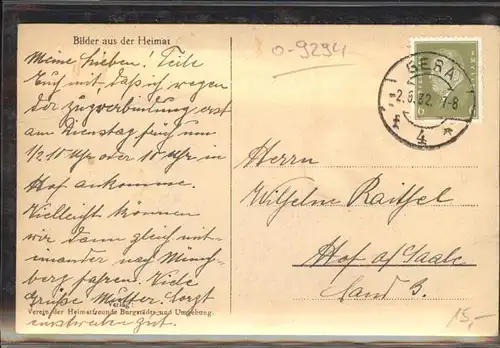 Bilder aus der Heimat
Meine Lieben! Teile
Euch mit daß ich wegen
der Zugverbindung erst
am Dienstag früh um
1/2 10 Uhr oder 10 Uhr in
Hof ankomme.
Vielleicht können
wir dann gleich mit-
einander nach Münch-
berg fahren. Viele
Grüße Mutter. Sorgt
Verlag:
Verein der Heimatfreunde Burgstädts und Umgebung.
einstweilen gut.
0-9294
GERA
2.8.32. 7-8
4
Herrn
Wilhelm Raithel
Hof a/Saale
Land B.
15,-